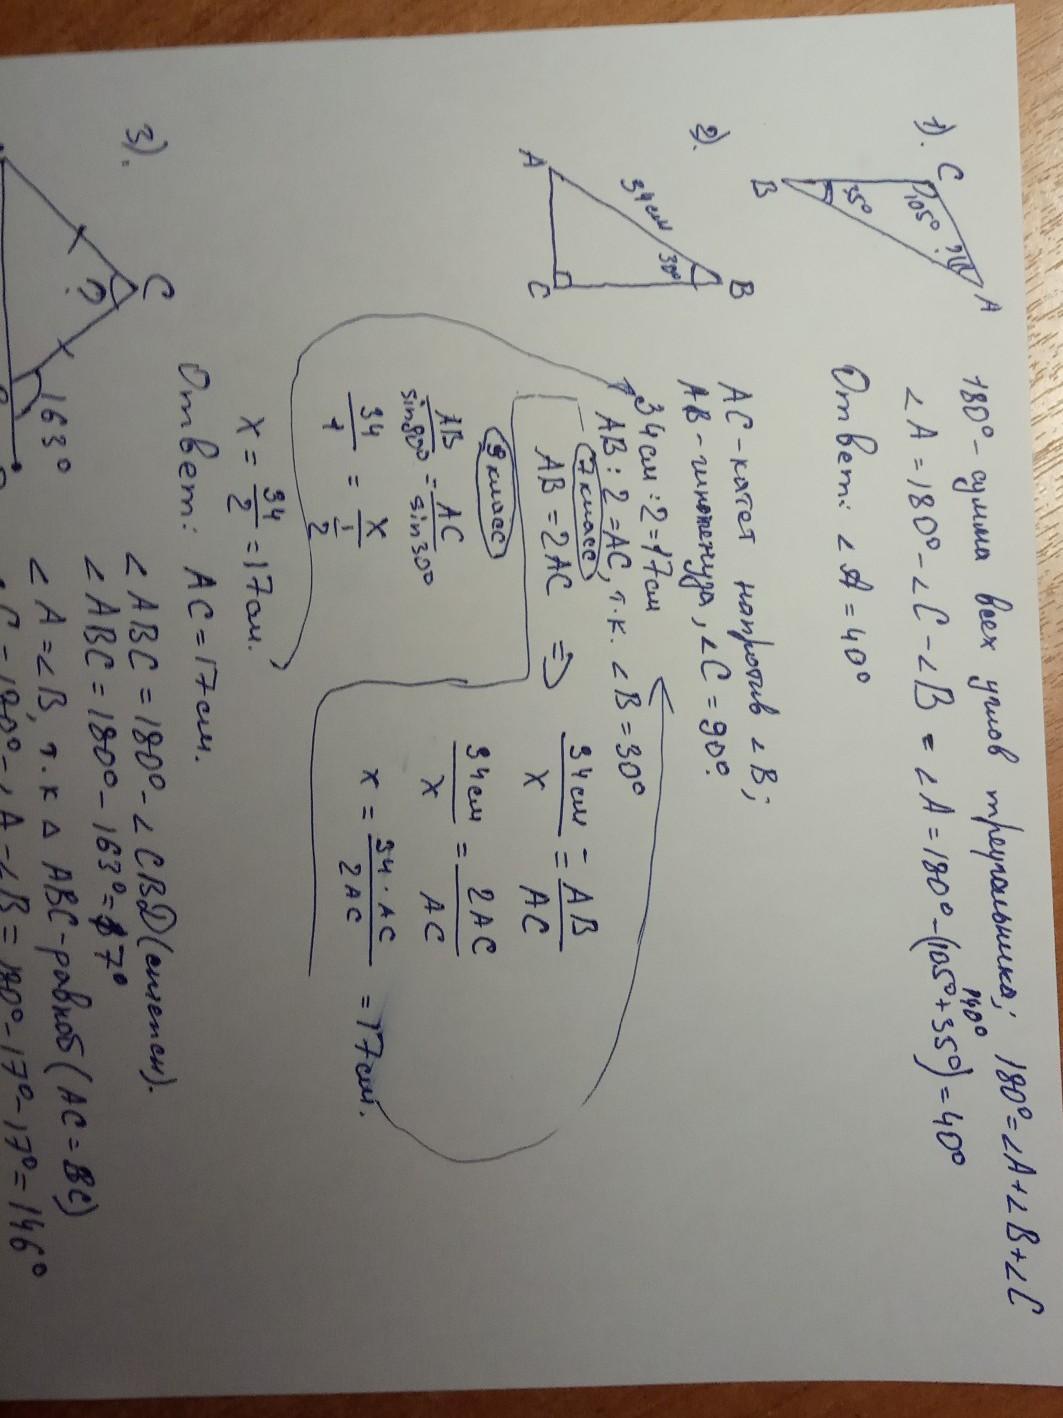 1).
C
105°
?
A
35°
B
180° - сумма всех углов треугольника; 180° = ∠A + ∠B + ∠C
140°
∠A = 180° - ∠C - ∠B = ∠A = 180° - (105° + 35°) = 40°
Ответ: ∠A = 40°
2).
B
30°
34 см
A
C
AC - катет напротив ∠B;
AB - гипотенуза, ∠C = 90°.
34 см : 2 = 17 см
AB : 2 = AC, т.к. ∠B = 30°
7 класс
AB = 2AC ⇒
34 см / x = AB / AC
34 см / x = 2AC / AC
x = 34 · AC / 2AC = 17 см.
9 класс
AB / sin90° = AC / sin30°
34 / 1 = x / 1/2
x = 34 / 2 = 17 см.
Ответ: AC = 17 см.
3).
C
?
163°
∠ABC = 180° - ∠CBD (
∠ABC = 180° - 163° = 17°
∠A = ∠B, т.к Δ ABC - равноб (AC = BC)
∠C = 180° - ∠A - ∠B = 180° - 17° - 17° = 146°